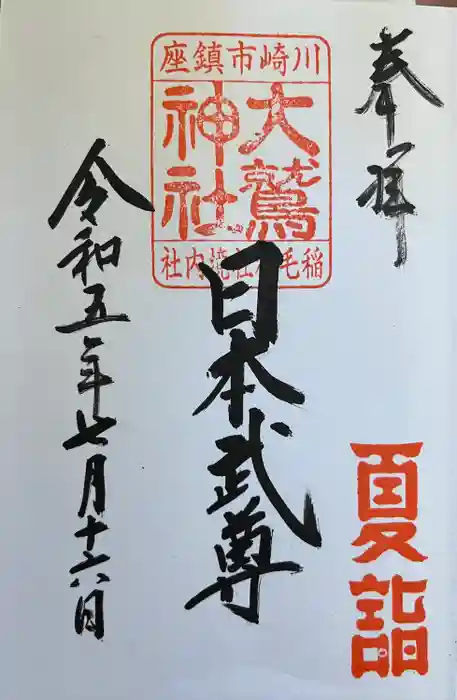 奉拝
川崎市鎮座
大鷲
神社
稲毛神社境内社
日本武尊
令和五年七月十六日
夏詣